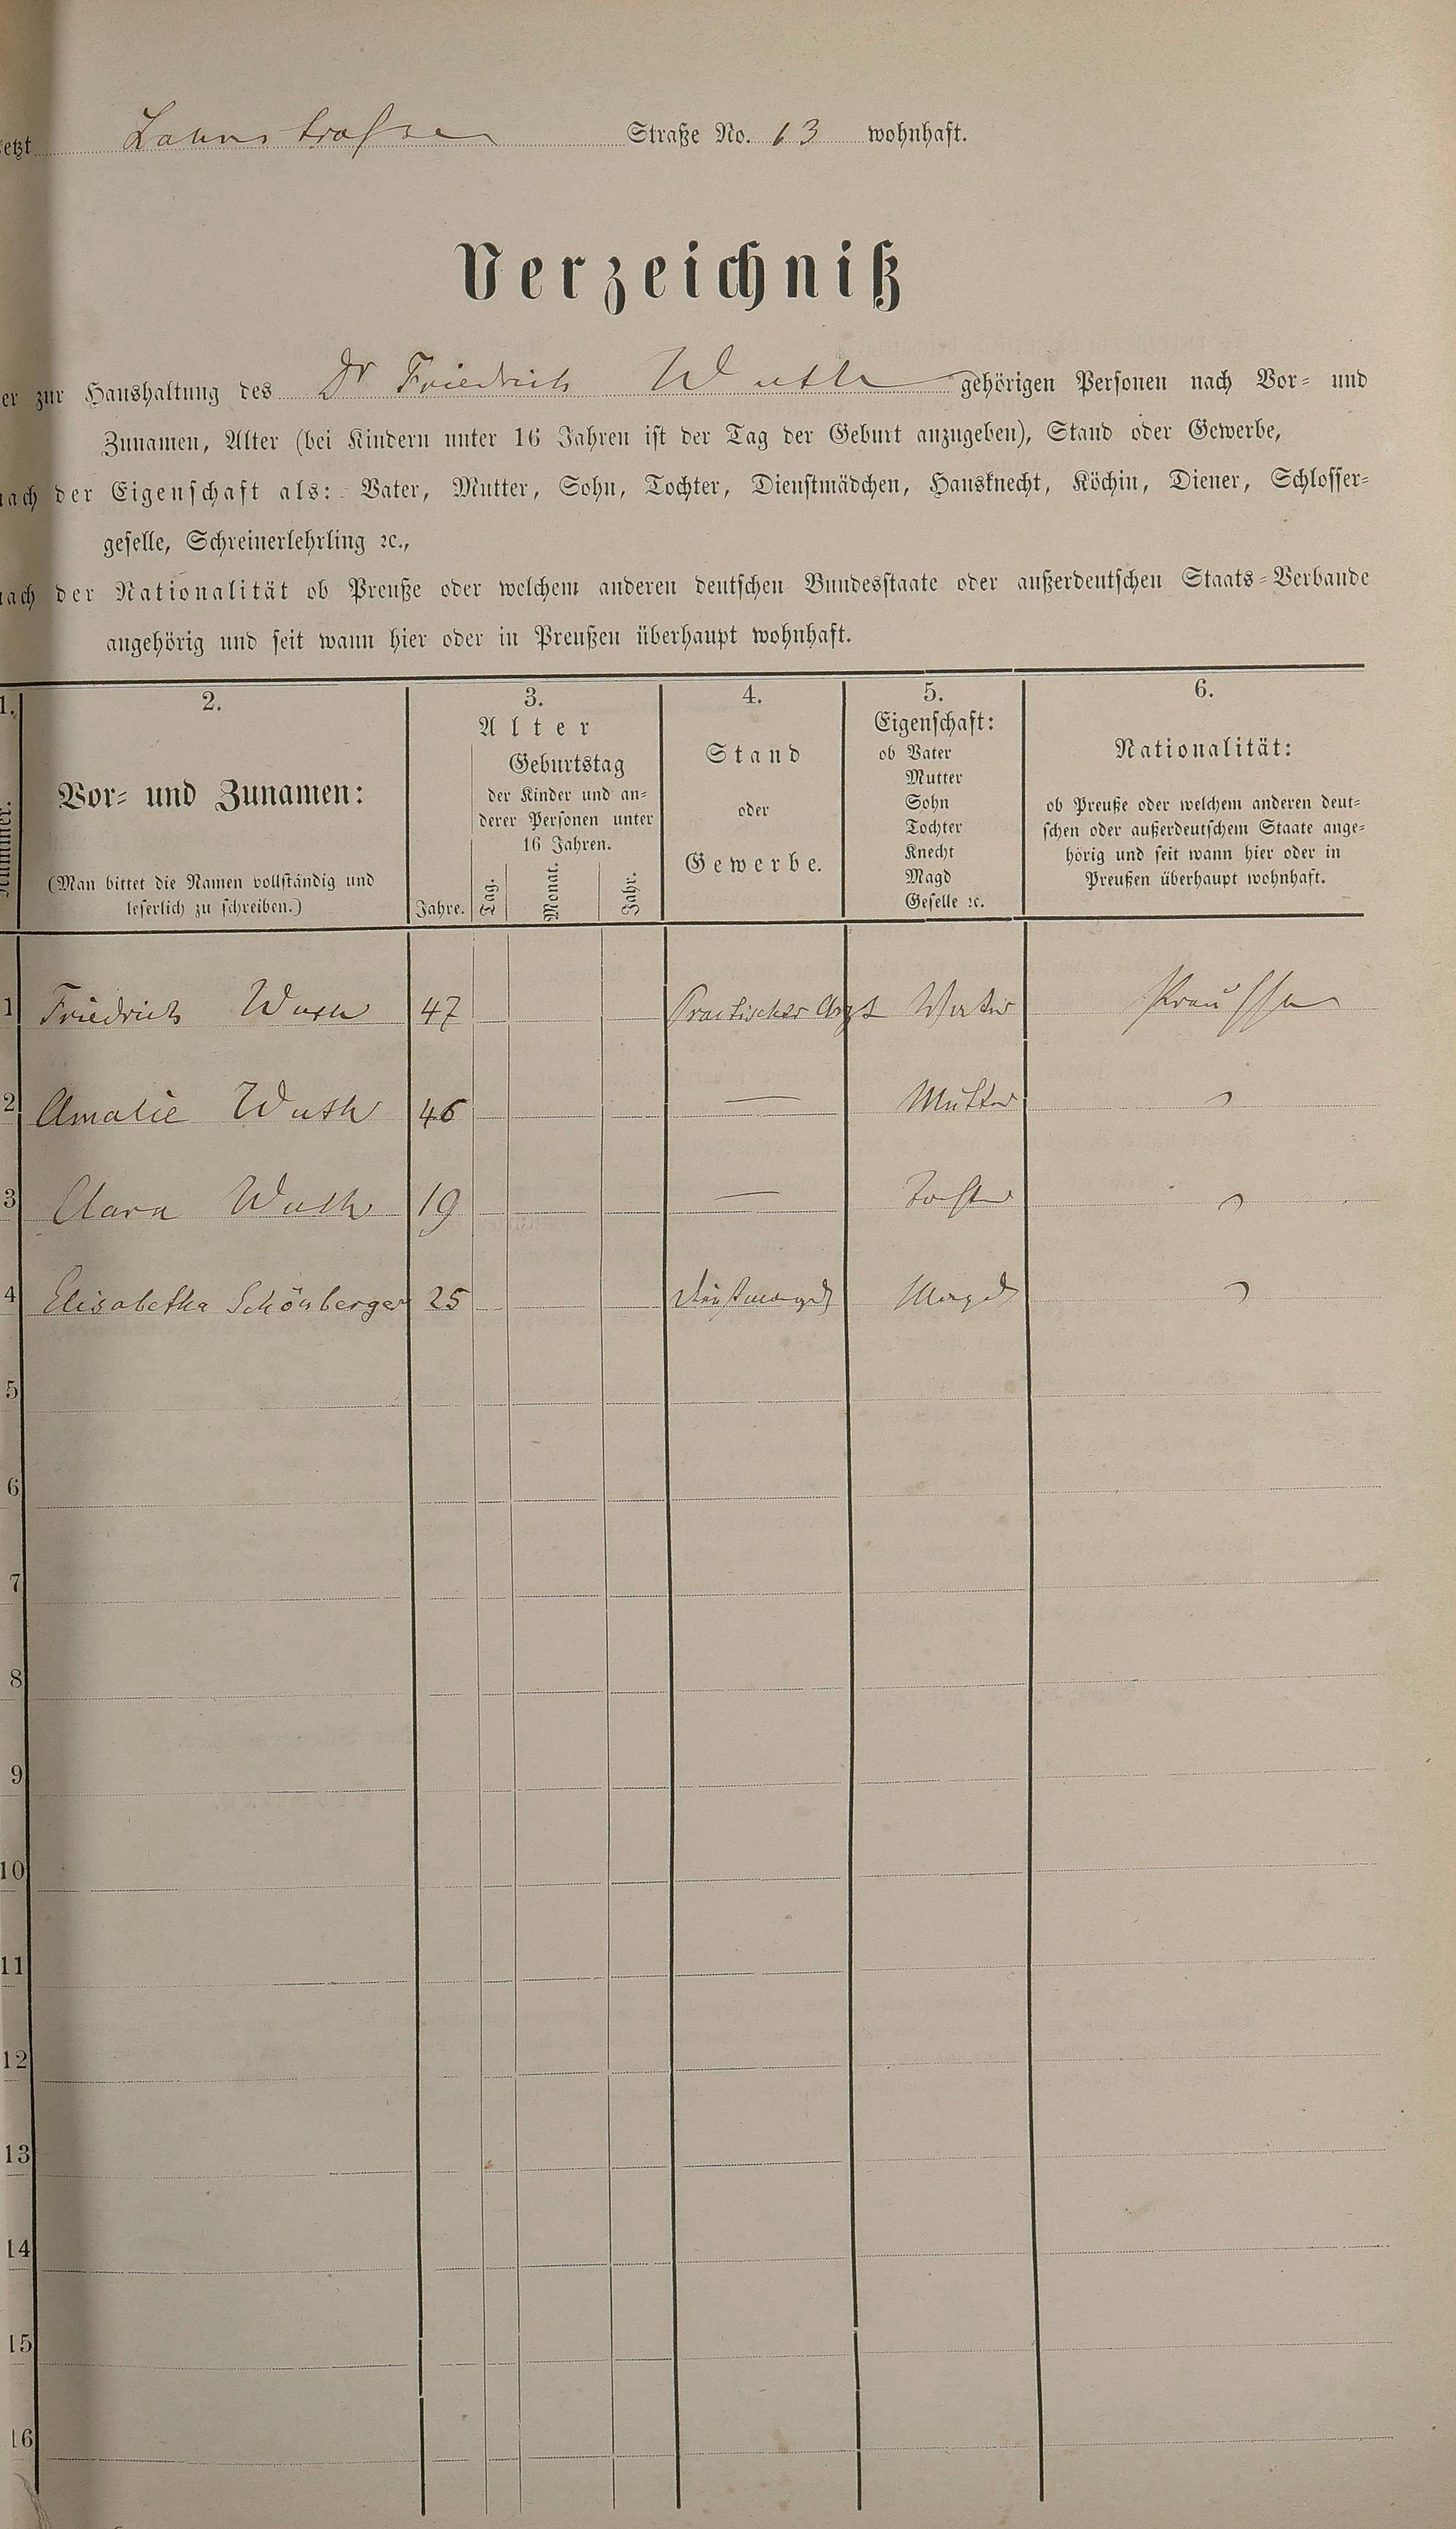 etzt Lahnstraße Straße No. 13 wohnhaft.
Verzeichniß
er zur Haushaltung des Dr Friedrich Wuth gehörigen Personen nach Vor- und
Zunamen, Alter (bei Kindern unter 16 Jahren ist der Tag der Geburt anzugeben), Stand oder Gewerbe,
nach der Eigenschaft als: Vater, Mutter, Sohn, Tochter, Dienstmädchen, Hausknecht, Köchin, Diener, Schlosser-
geselle, Schreinerlehrling ꝛc.,
nach der Nationalität ob Preuße oder welchem anderen deutschen Bundesstaate oder außerdeutschen Staats-Verbande
angehörig und seit wann hier oder in Preußen überhaupt wohnhaft.
1. 2. 3. 4. 5. 6.
Nummer.
Vor- und Zunamen:
(Man bittet die Namen vollständig und
leserlich zu schreiben.)
Alter
Jahre.
Geburtstag
der Kinder und an-
derer Personen unter
16 Jahren.
Tag. Monat. Jahr.
Stand
oder
Gewerbe.
Eigenschaft:
ob Vater
Mutter
Sohn
Tochter
Knecht
Magd
Geselle ꝛc.
Nationalität:
ob Preuße oder welchem anderen deut-
schen oder außerdeutschem Staate ange-
hörig und seit wann hier oder in
Preußen überhaupt wohnhaft.
1 Friedrich Wuth 47 Practischer Arzt Vater Preusse
2 Amalie Wuth 46 — Mutter "
3 Clara Wuth 19 — Tochter "
4 Elisabetha Schönberger 25 Dienstmagd Magd "
5
6
7
8
9
10
11
12
13
14
15
16